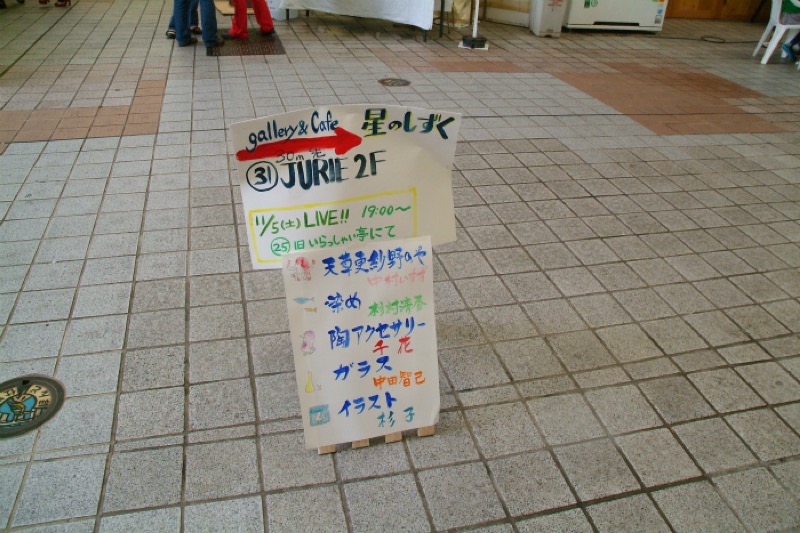 gallery & Cafe 星のしずく
30m先
㉛ JURIE 2F
11/5(土) LIVE!! 19:00〜
㉕ 旧いらっしゃい亭にて
天草更紗野のや
中村いすず
染め
杉村清春
陶アクセサリー
千花
ガラス
中田智己
イラスト
杉子